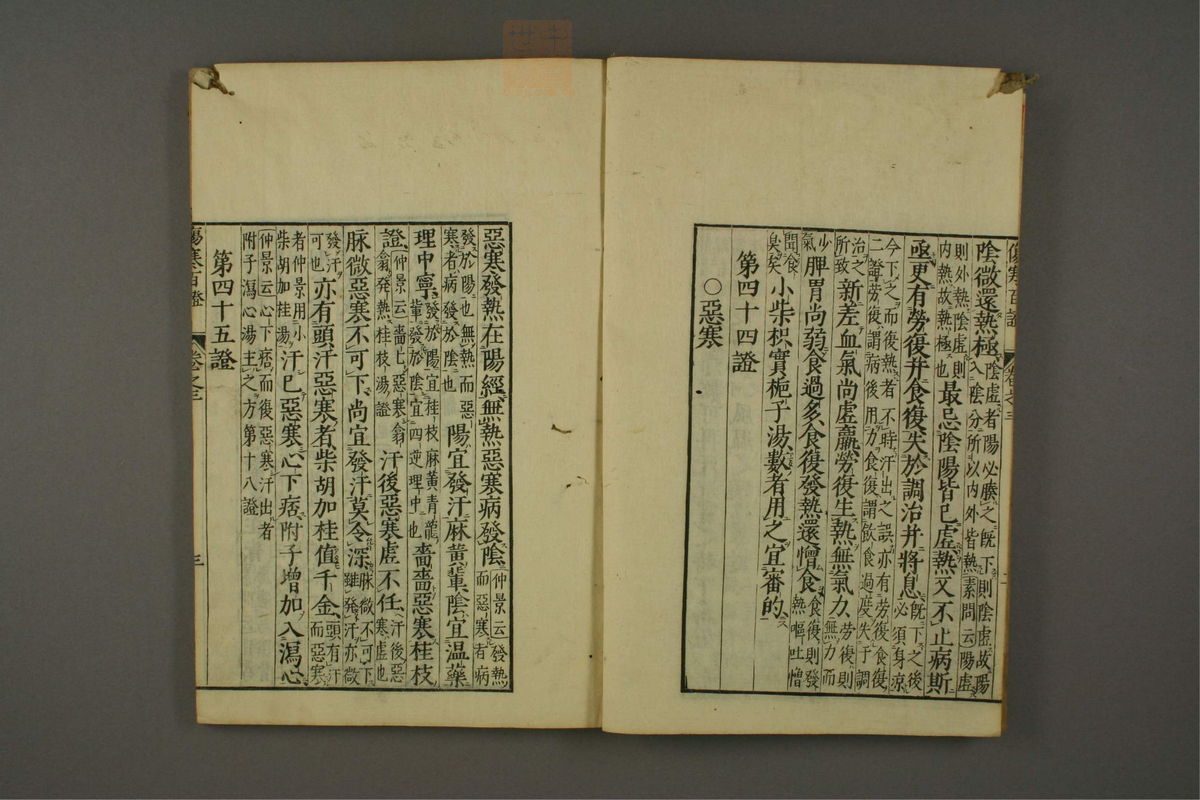 傷寒百證　卷之三
陰微還熱極陰虛者陽必湊之既下則陰虛故陽
入陰分所以內外皆熱素問云陽虛
則外熱陰虛則
內熱故熱極也最忌陰陽皆已虛熱又不止病斯
亟更有勞復并食復失於調治并將息既下之後
必須身涼
今下之而後熱者不時汗出之誤亦有勞復食復
二證勞復謂病後用力食復謂飲食過度失于調
治之
所致新差血氣尚虛羸勞復生熱無氣力勞復則
無力而
少
氣脾胃尚弱食過多食復發熱還憎食食復則發
熱嘔吐憎
聞食
臭矣小柴枳實梔子湯數者用之宜審的
第四十四證
○惡寒
惡寒發熱在陽經無熱惡寒病發陰仲景云發熱
而惡寒者病
發於陽也無熱而惡
寒者病發於陰也陽宜發汗麻黃輩陰宜溫藥
理中寧發於陽宜桂枝麻黃青龍
輩發於陰宜四逆理中也嗇嗇惡寒桂枝
證仲景云嗇嗇惡寒翕
翕發熱桂枝湯證汗後惡寒虛不任汗後惡
寒虛也
脉微惡寒不可下尚宜發汗莫令深脉微不可下
雖發汗亦微
發汗
可也亦有頭汗惡寒者柴胡加桂值千金頭有汗
而惡寒
者仲景用小
柴胡加桂湯汗已惡寒心下痞附子增加入瀉心
仲景云心下痞而復惡寒汗出者
附子瀉心湯主之方第十八證
第四十五證
傷寒百證　卷之三　三